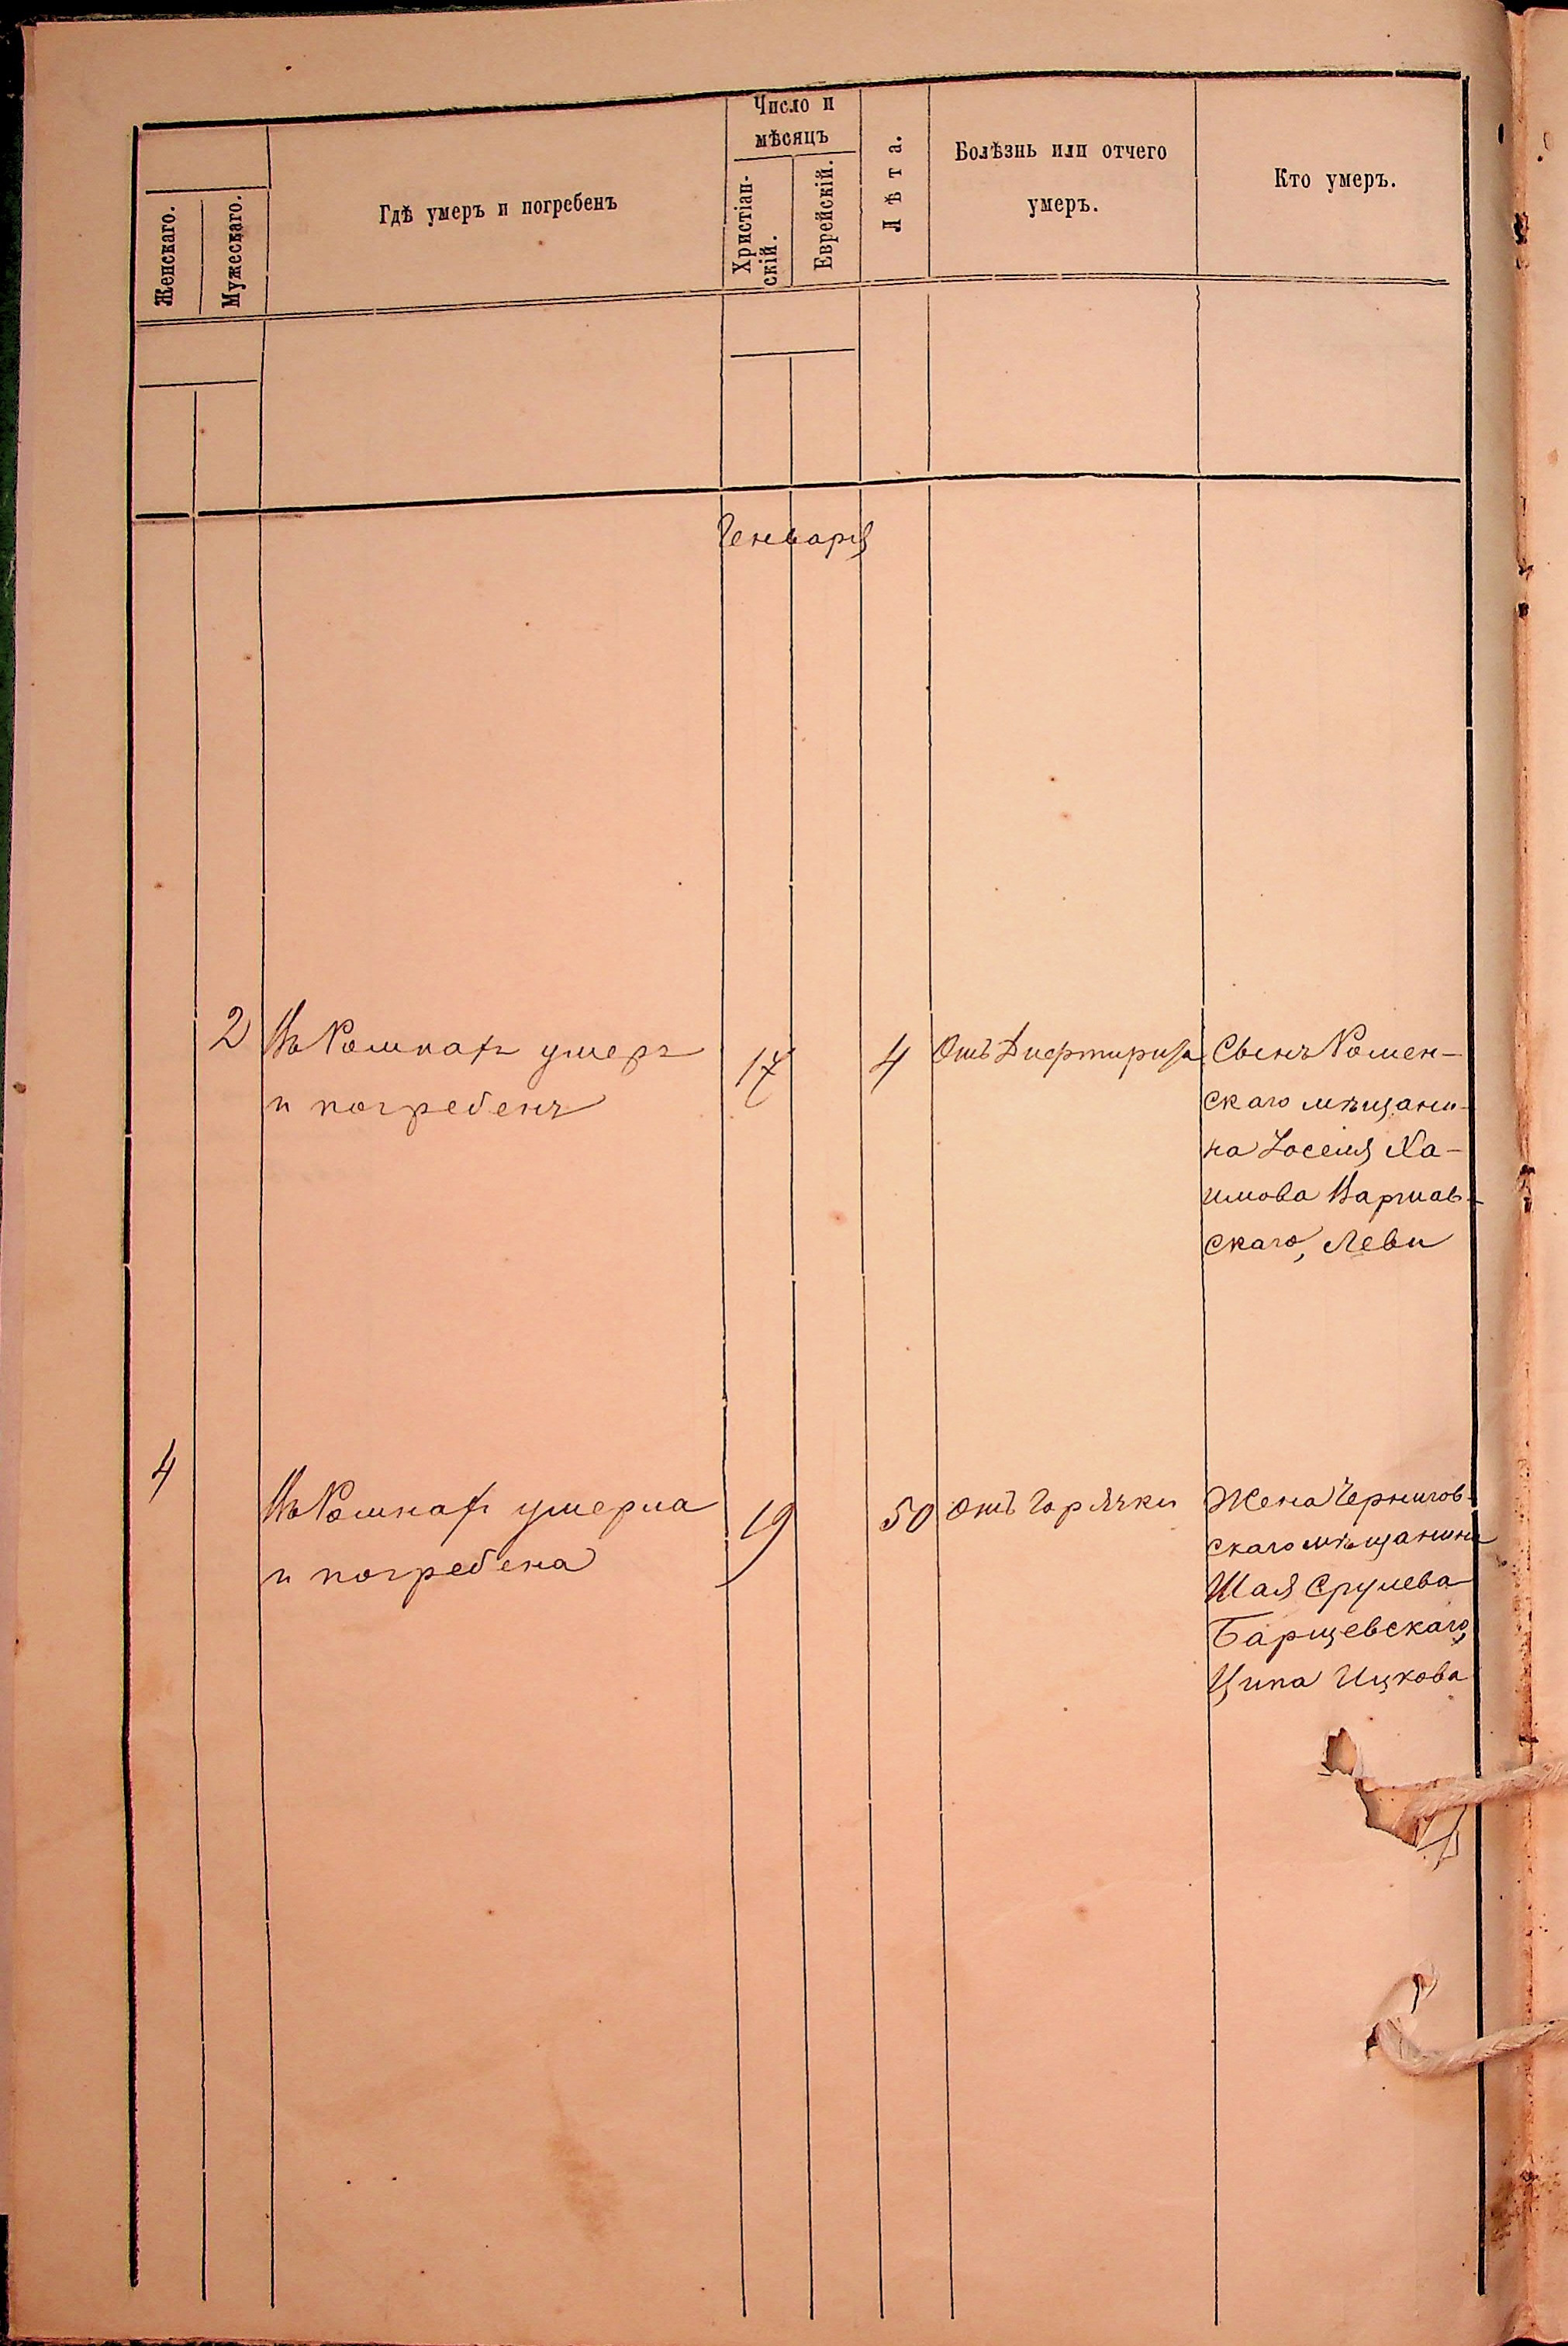 Число и
мѣсяцъ
Женскаго.
Мужескаго.
Гдѣ умеръ и погребенъ
Христіан-
скій.
Еврейскій.
Лѣта.
Болѣзнь или отчего
умеръ.
Кто умеръ.
Генваря
2
Въ Ромнахъ умеръ
и погребенъ
17
4
Отъ Дифтирита
Сынъ Ромен-
скаго мѣщани-
на Іоселя Ха-
имова Варшав-
скаго, Леви
4
Въ Ромнахъ умерла
и погребена
19
50
Отъ Горячки
Жена Чернигов-
скаго мѣщанина
Шая Срулева
Барщевскаго,
Ципа Ицкова